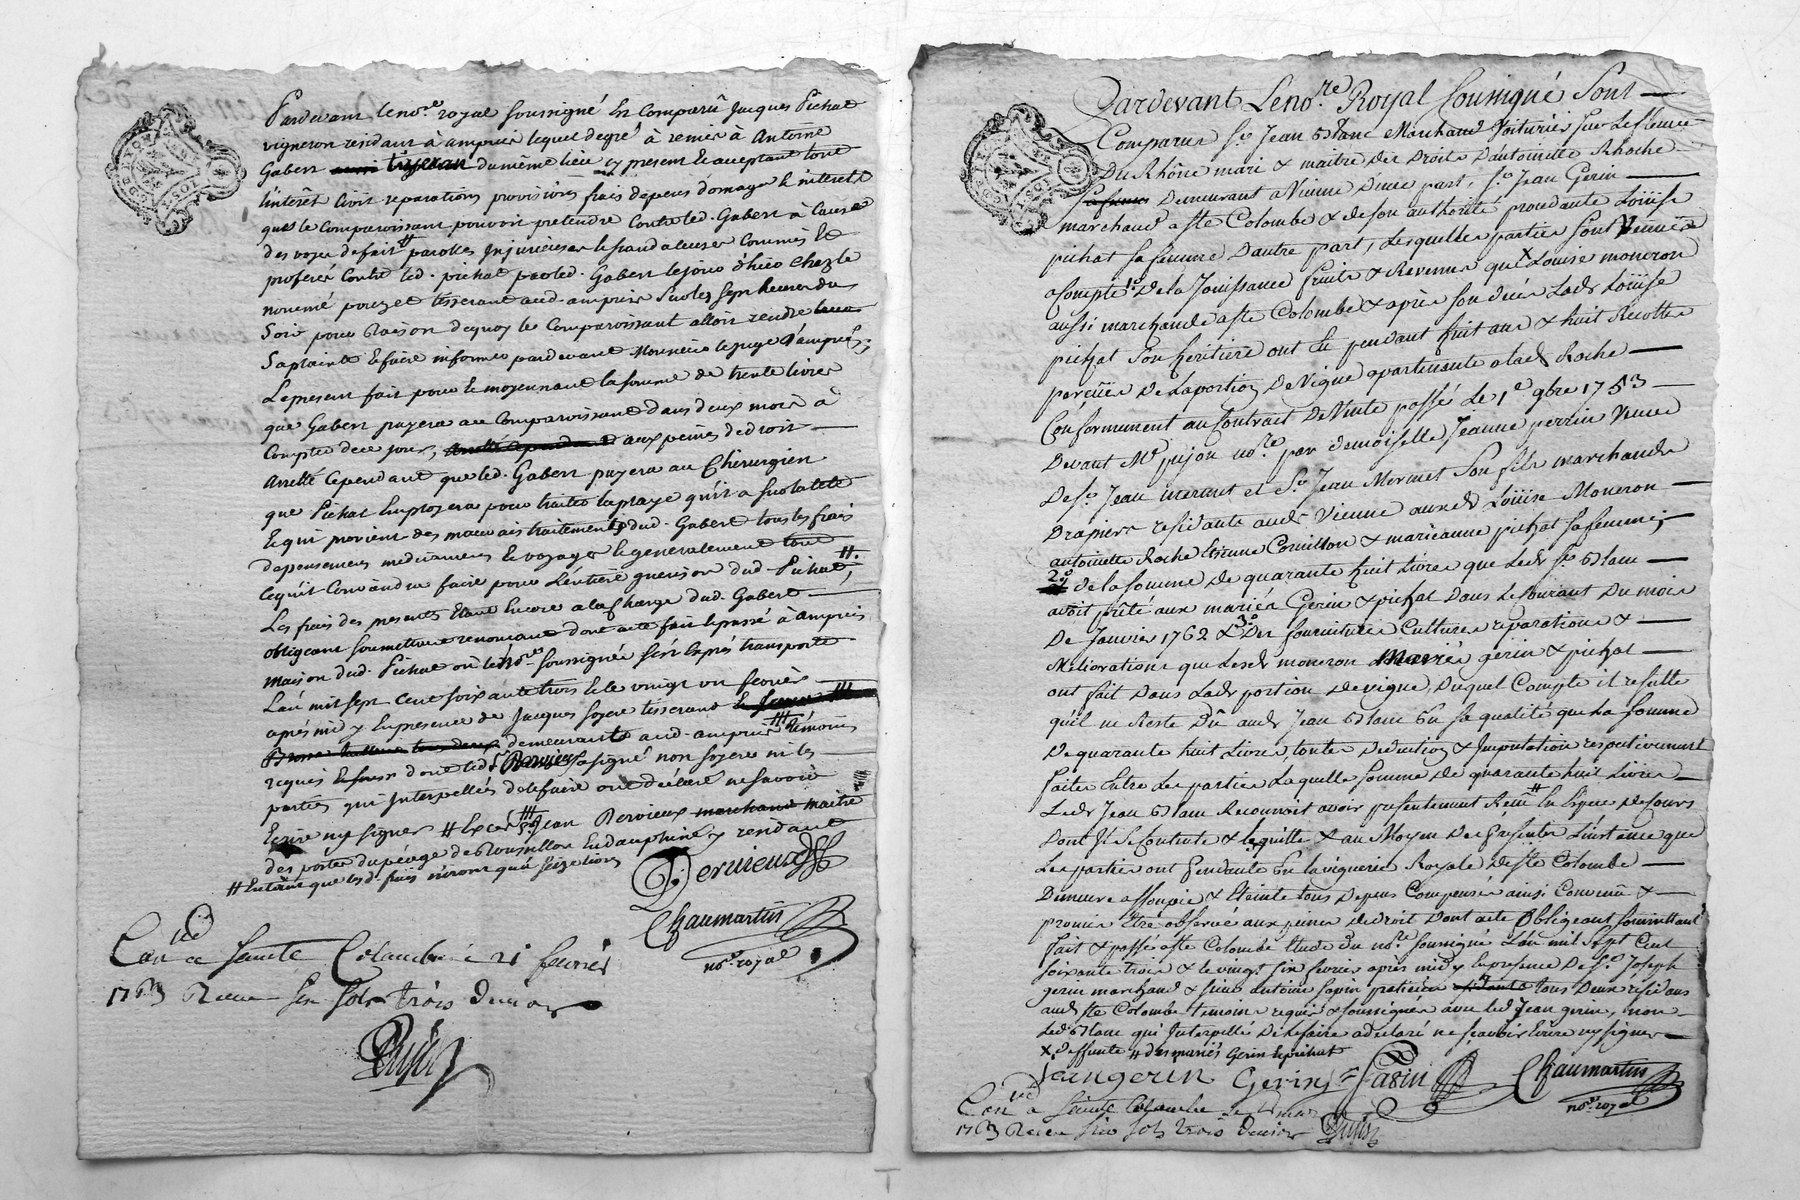 Pardevant le no.re royal soussigné Est Comparu Jacques Pichat
vigneron residant à ampuis lequel degré à remis à Antoine
Gabert tisseran du même lieu cy present Et acceptant tout
l'intérêt Civil reparations provisions frais depens domages Et interets
que le Comparoissant pouvoit pretendre Contre led. Gabert à Cause
des voyes de fait # parolles Injurieuses Et scandaleuses Commis Et
proferés Contre led. pichat par led. Gabert le jour d'hier Chez le
nommé pouzet tisserant aud. ampuis sur les sept heures du
Soir pour Raison de quoy le Comparoissant alloit rendre
Sa plainte Et faire informer pardevant Monsieur le juge d'ampuis;
Le present fait pour Et moyennant la somme de trente livres
que Gabert payera au Comparoissant dans deux mois à
Compter de ce jour, aux peines de droit
Arretté Cependant que led. Gabert payera au Chirurgien
que Pichat Employera pour traiter la playe qu'il a sur la tete
Et qui provient des mauvais traitements dud. Gabert tous les frais
depensemens medicamens Et voyages Et generalement tout
ce qu'il Conviendra faire pour l'entière guerison dud. Pichat, #.
Les frais des presentes Etant Encore a la Charge dud. Gabert
obligeant soumettant renonçant dont acte fait Et passé à Ampuis
maison dud. Pichat où le no.re soussigné s'est Exprés transporté
L'an mil sept cent soixante trois Et le vingt un fevrier
aprés midy En presence de Jacques soyere tisserant
demeurants aud. ampuis temoins
requis Et soussr. dont led. Sr. Rervieux a signé non soyere ni les
parties qui Interpellées de le faire ont déclaré ne savoir
Ecrire ny signer # Excès Jean Rervieux marchand maître
des portes du péage de Roussillon En dauphiné y residant
# Entendu que lesd. frais n'iront qu'à seize livres
Dervieux
Chaumartin
no.re royal
Con.lé a Sainte Colombe le 21 fevrier
1763 Receu six sols trois deniers
Pardevant Le no.re Royal Soussigné Sont
Comparus S.r Jean Blanc Marchand Voiturier sur Le fleuve
Du Rhône mari & maitre des Droits d'antoinette Rhoche
sa femme Demeurant a Vienne D'une part, S.r Jean Gerin
marchand a s.te Colombe & de son authorité procedante Loüise
pichat sa femme D'autre part, Lesquelles parties Sont Venües
a Compte 1.o De la Joüissance fruits & Revenus que X Louise moneron
aussi marchande a s.te Colombe & après son décès Lad.e Loüise
pichat Son héritière ont Eu pendant huit ans & huit Recoltes
perçües De La portion De Vigne apartenante a lad.e Roche
Conformement au Contrait De Vente passé Le 1.e 9bre 1753
Devant M.e pujon no.re par demoiselle Jeanne perrin Veuve
De S.r Jean mermet et S.r Jean Mermet Son fils marchands
Drapiers residants aud. Vienne auxd. Loüise Moneron
antoinette Roche Etienne Cornillon & marieanne pichat sa femme;
2.o de la somme de quarante huit Livres que Led. S.r Blanc
avoit prêté aux mariés Gerin & pichat Dans Le Courant Du mois
De Janvier 1762 & 3.o Des fournitures Cultures reparations &
Meliorations que Lesd. moneron Mariés gerin & pichat
ont fait Dans Lad.e portion de vigne, Duquel Compte il resulte
qu'il ne Reste Dû aud. Jean Blanc En sa qualité que La somme
De quarante huit Livres, toutes Deductions & Imputations respectivement
faites Entre Les parties Laquelle somme De quarante huit Livres
Led. Jean Blanc Reconnoit avoir presentement Reçu # En Espece de Cours
Dont Il Se Contente & Le quitte & au Moyen Des présentes L'instance que
Les parties ont pendante En la viguerie Royale de s.te Colombe
Demeure assoupie & Eteinte tous Depens Compensés ainsi Convenû &
promis Etre observé aux peines de droit Dont acte Obligeant soumettant
fait & passé a s.te Colombe Etude du no.re soussigné L'an mil sept Cent
soixante trois & le vingt six fevrier après midy En presence De S.r Joseph
gerin marchand & sieur antoine sapin praticien tous Deux residans
aud. s.te Colombe temoins requis & soussignés avec led. Jean gerin, non
Led. Blanc qui Interpellé De Le faire a declaré ne sçavoir Ecrire ny signer
X deffunte # des mariés Gerin Et pichat
Jean gerin Gerin Sapin Chaumartin
no.re royal
Con.lé a Sainte Colombe le mars
1763 Receu six sols trois deniers